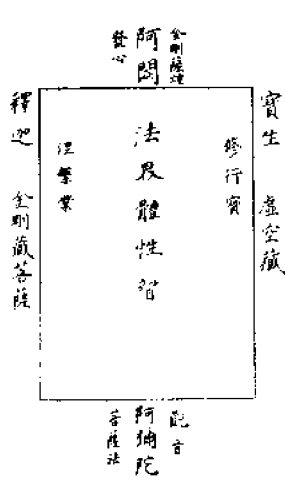 金剛薩埵
阿閦
發心
寶生 虛空藏
修行寶
法界體性智
涅槃業
釋迦 金剛藏菩薩
觀音
阿彌陀
菩薩法